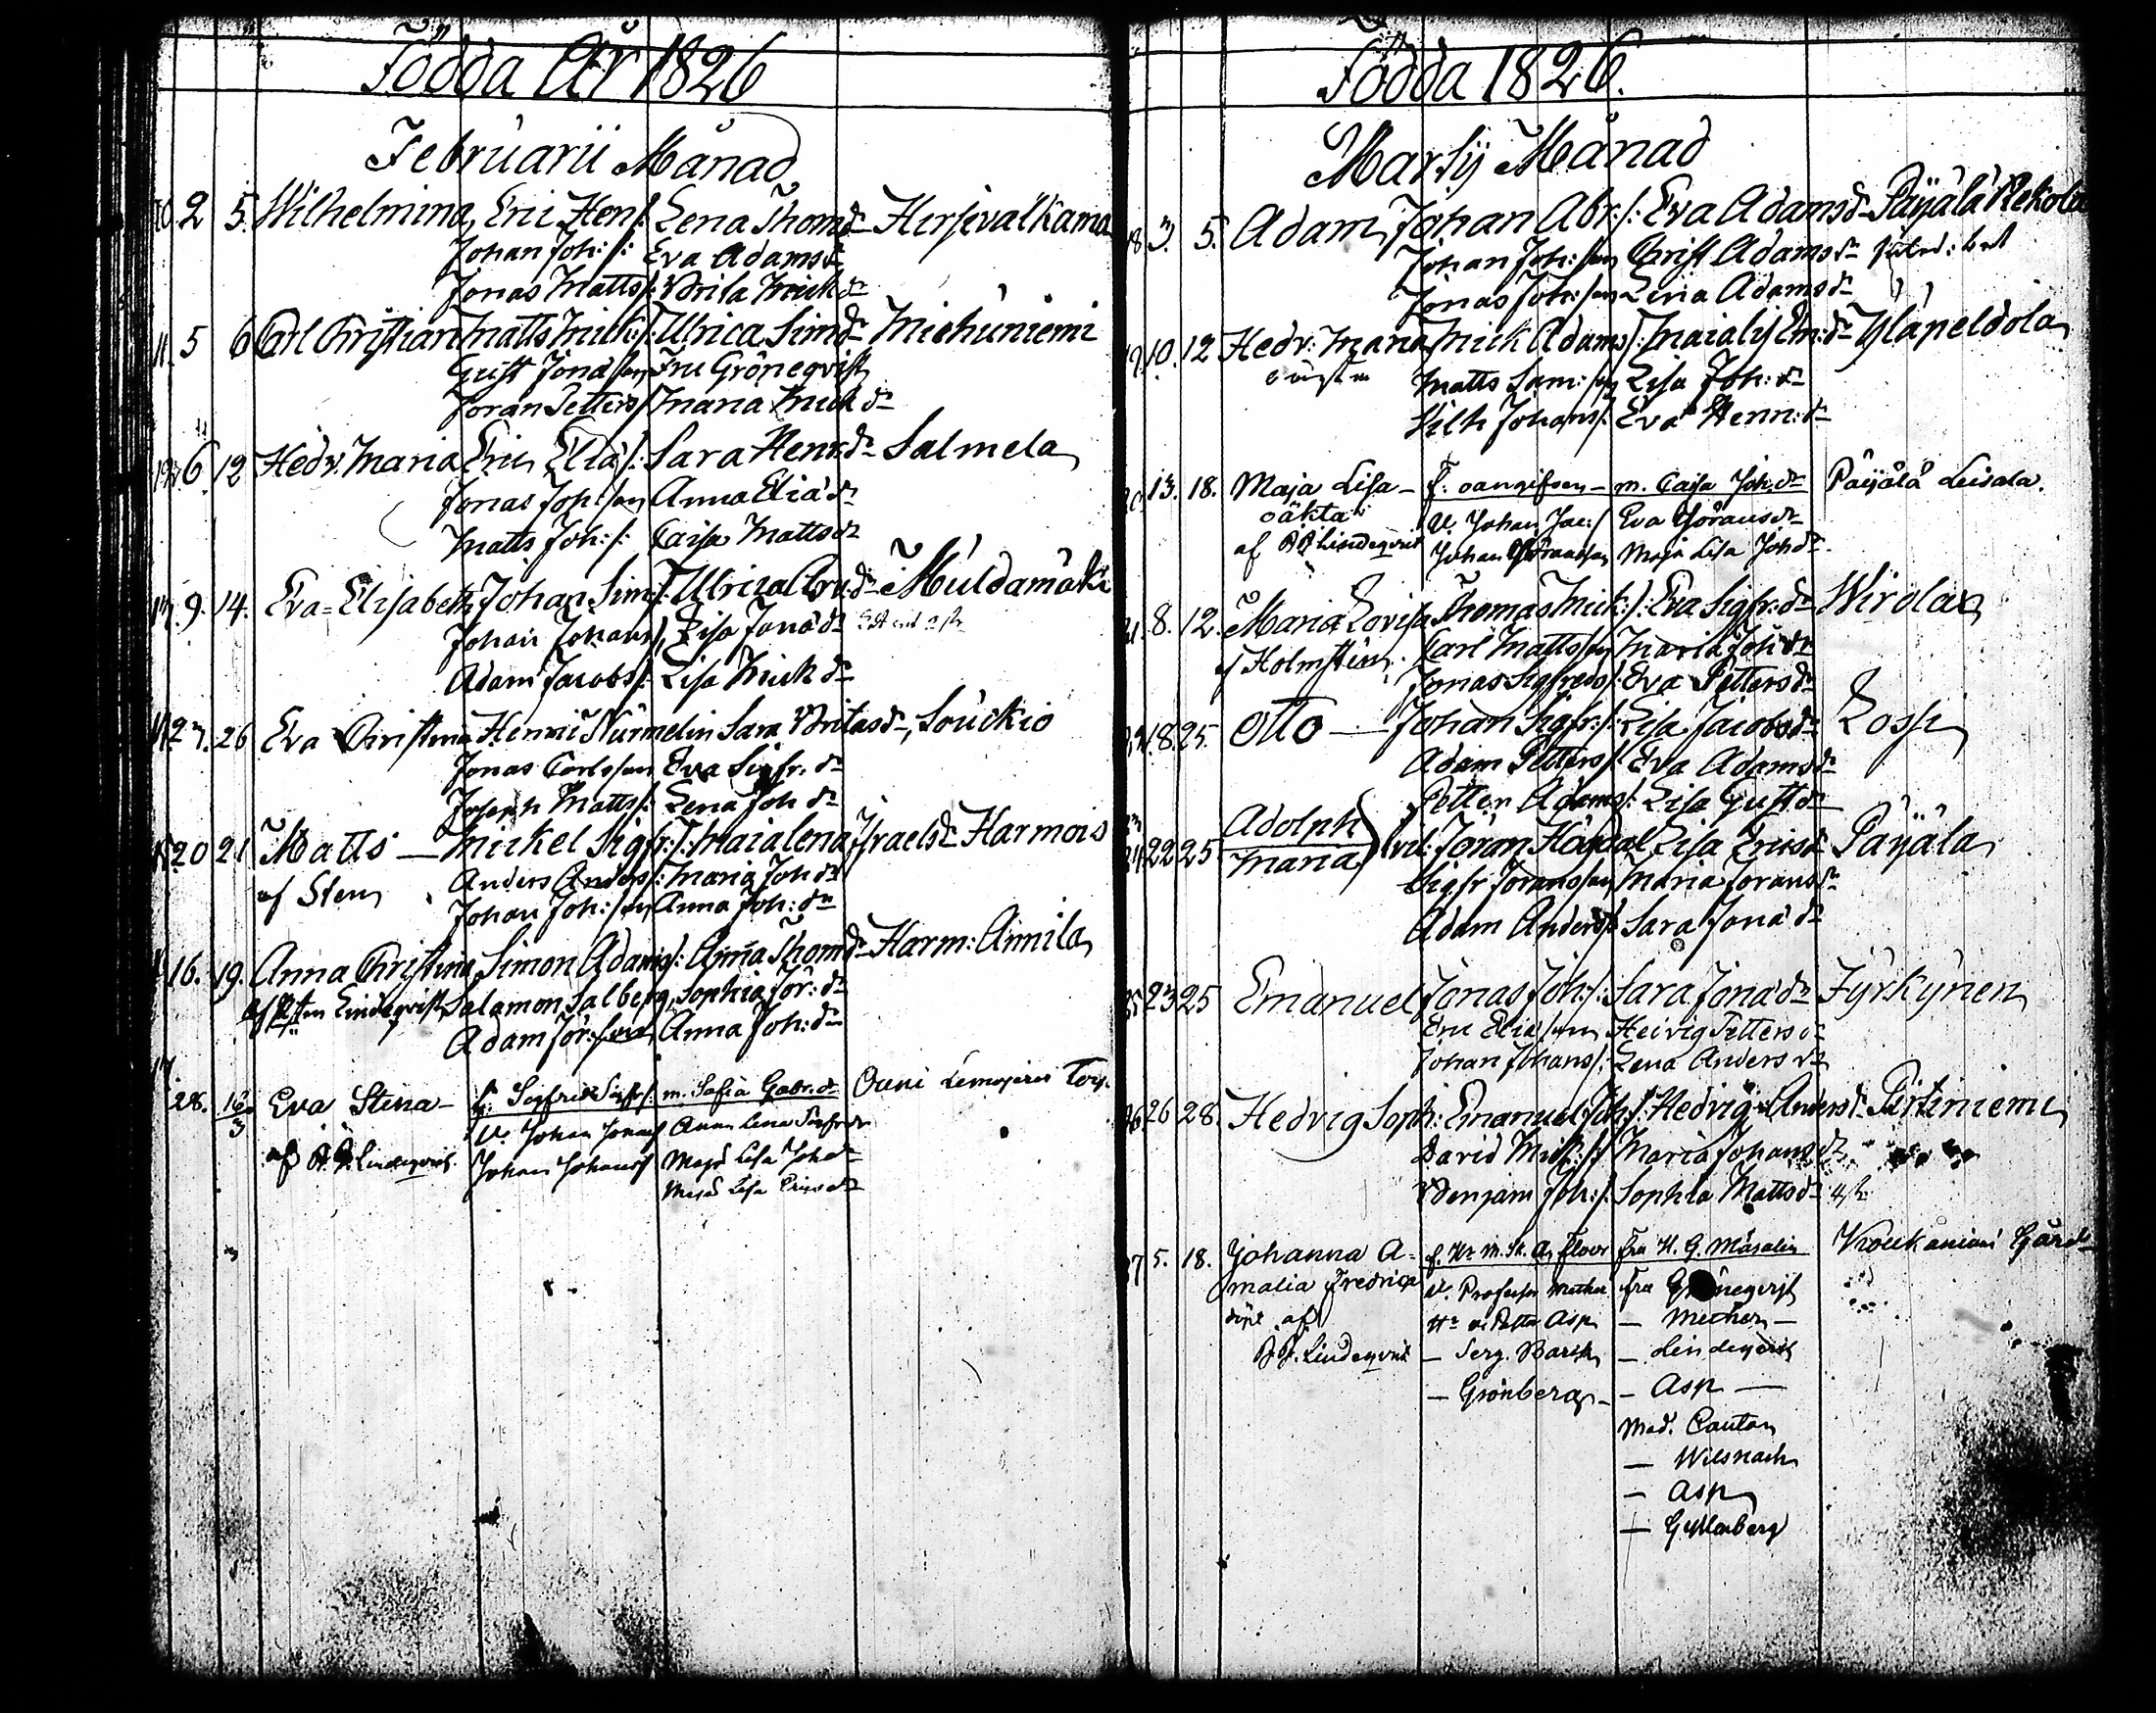 Födda År 1826
Februarii Månad
10. 2 5. Wilhelmina, Eric Hen/: Lena Thom.dr Hirsjevalkama
Johan Joh:/: Eva Adamsdr
Jonas Matts/: Brita Mick dr
11. 5 6 Carl Christian Matts Mick:/: Ulrica Sim dr Michuniemi
Gust Jona/son Fru Gröneqvist
Joran Petters/: Maria Mick dr
12. 6 12 Hedv. Maria Eric Elia/: Sara Henr.dr Salmela
Jonas Joh/son Anna Elia dr
Matts Joh:/: Caisa Matts dr
13. 9. 14. Eva-Elisabeth Johan Sim/: Ulrica dr Muldamäki
Johan Johans/: Lisa Jona dr
Adam Jacobs/: Lisa Mick dr
27. 26 Eva Christina Henric Nurmelin Sara Britas dr, Souckio
Jonas Carls/son Eva Sigfr. dr
Joseph Matts/: Lena Joh dr
20 21 Matts — Mickel Sigfr:/: Maialena Israels dr Harmois
Anders Anders/: Maria Joh dr
af Sten Johan Joh:/son Anna Joh: dr
16. 19. Anna Christina Simon Adams/: Anna Thom dr Harm: Annila
af Lindeqvist Salamon Salberg, Sophia Jör: dr
Adam Jör:/son Anna Joh: dr
17.
28. 12/3 Eva Stina — f: Sigfrid Sigfr/: m. Sofia Gabr. dr Ouni Torp.
V. Johan Jonas/ Anna Lena Sigfr dr
af Lindeqvist. Johan Johans/ Maja Lisa Joh dr
Maja Lisa Erics dr
Födda 1826.
Martij Månad
18 3. 5. Adam, Johan Abr:/: Eva Adams dr Päijälä Rekola
Johan Joh:/son Christ Adams dr
Jonas Joh:/son Lena Adams dr
19 10. 12 Hedv: Maria Mick Adams/: Maialis Em: dr Yläpeldola
Matts Sam:/son Lisa Joh: dr
Vilh Johans/: Eva Henr: dr
13. 18. Maja Lisa — f: oangifven — m. Caisa Joh. dr Päijälä Leisala.
oäkta V. Johan Jac:/ Eva Jörans dr
af Lindeqvist Johan Göransson Maja Lisa Joh dr.
21. 8. 12. Maria Lovisa Thomas Mick:/: Eva Sigfr: dr Wirola
af Holmsten. Carl Matts/son Maria Joh dr
Jonas Sigfreds/: Eva Petters dr
18. 25. Otto — Johan Sigfr:/: Lisa Jacobs dr Lossi
Adam Petters/: Eva Adams dr
Petter Adams/: Lisa Gust dr
22 25 Adolph
Maria Jöran Lisa Erics dr Päijälä
Sigfr Jörans/son Maria Jorans dr
Adam Anders/: Sara Jona dr
25 23 25 Emanuel Jonas Joh:/: Sara Jona dr Jyrkynen
Eric Elia/son Heivig Petters dr
Johan Johans/: Lena Anders dr
26 26 28. Hedvig Soph: Emanuel Joh:/: Hedvig Anders dr Pirtiniemi
David Mick:/: Maria Johans dr
Benjam Joh:/: Sophia Matts dr
27 5. 18. Johanna A- Fru H. G. Masalin Gård
malia Fredrica V. Professor Mether Fru Gröneqvist
döpt af Asp — Mether —
Lindeqvist — Serg. — Lindeqvist
— Grönberg — — Asp —
Mad. Cautón
— Wilsnach
— Asp
— Gyllenberg